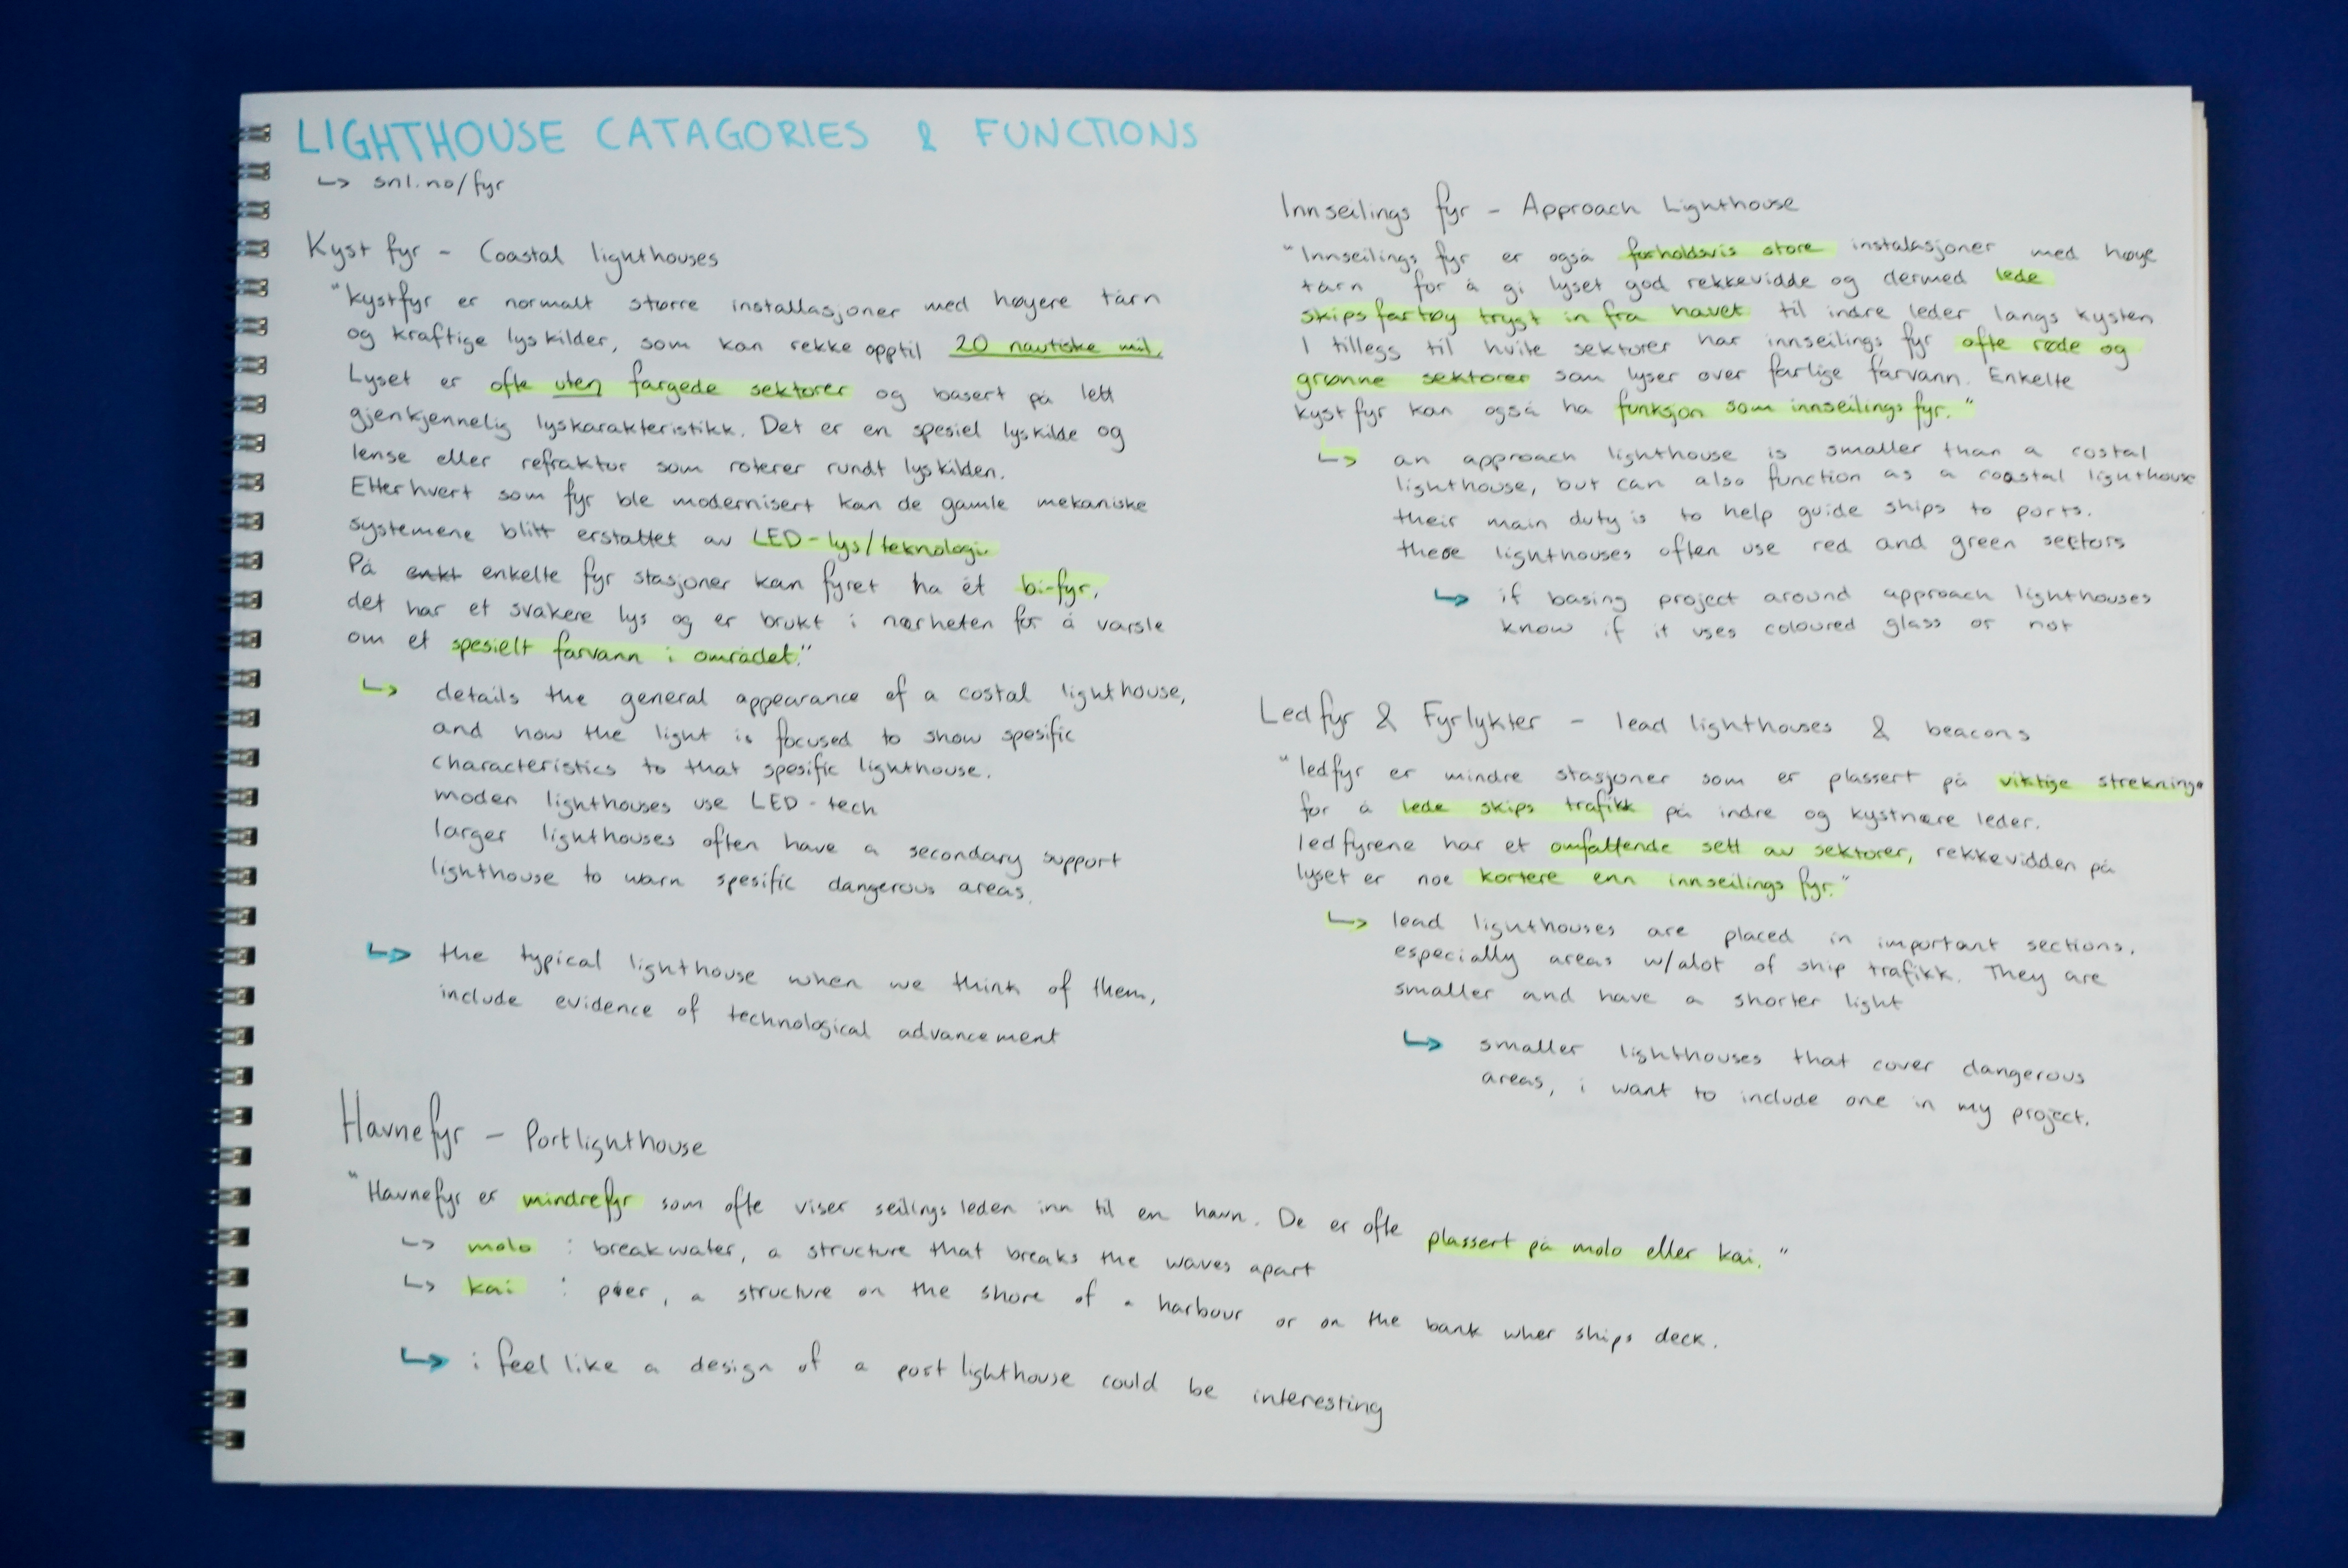 LIGHTHOUSE CATAGORIES & FUNCTIONS
↳ snl.no/fyr
Kyst fyr - Coastal lighthouses
"kystfyr er normalt større installasjoner med høyere tårn
og kraftige lyskilder, som kan rekke opptil 20 nautiske mil.
Lyset er ofte uten fargede sektorer og basert på lett
gjenkjennelig lyskarakteristikk. Det er en spesiel lyskilde og
lense eller refraktor som roterer rundt lyskilden.
Etterhvert som fyr ble modernisert kan de gamle mekaniske
systemene blitt erstattet av LED-lys/teknologi
På enkt enkelte fyr stasjoner kan fyret ha ét bi-fyr,
det har et svakere lys og er brukt i nærheten for å varsle
om et spesielt farvann i området."
↳ details the general appearance of a costal lighthouse,
and how the light is focused to show spesific
characteristics to that spesific lighthouse.
moden lighthouses use LED-tech
larger lighthouses often have a secondary support
lighthouse to warn spesific dangerous areas.
↳ the typical lighthouse when we think of them,
include evidence of technological advancement
Innseilings fyr - Approach Lighthouse
"Innseilings fyr er også forholdsvis store instalasjoner med høye
tårn for å gi lyset god rekkevidde og dermed lede
skips fartøy trygt in fra havet til indre leder langs kysten
I tillegg til hvite sektorer har innseilings fyr ofte røde og
grønne sektorer som lyser over farlige farvann. Enkelte
kyst fyr kan også ha funksjon som innseilings fyr."
↳ an approach lighthouse is smaller than a costal
lighthouse, but can also function as a coastal lighthouse
their main duty is to help guide ships to ports.
these lighthouses often use red and green sectors
↳ if basing project around approach lighthouses
know if it uses coloured glass or not
Led fyr & Fyrlykter - lead lighthouses & beacons
"ledfyr er mindre stasjoner som er plassert på viktige strekninge
for å lede skips trafikk på indre og kystnære leder.
ledfyrene har et omfattende sett av sektorer, rekkevidden på
lyset er noe kortere enn innseilings fyr."
↳ lead lighthouses are placed in important sections.
especially areas w/alot of ship trafikk. They are
smaller and have a shorter light
↳ smaller lighthouses that cover dangerous
areas, i want to include one in my project.
Havnefyr - Portlighthouse
"Havnefyr er mindrefyr som ofte viser seilings leden inn til en havn. De er ofte plassert på molo eller kai."
↳ molo : breakwater, a structure that breaks the waves apart
↳ kai : pier, a structure on the shore of a harbour or on the bank wher ships deck.
↳ i feel like a design of a port lighthouse could be interesting